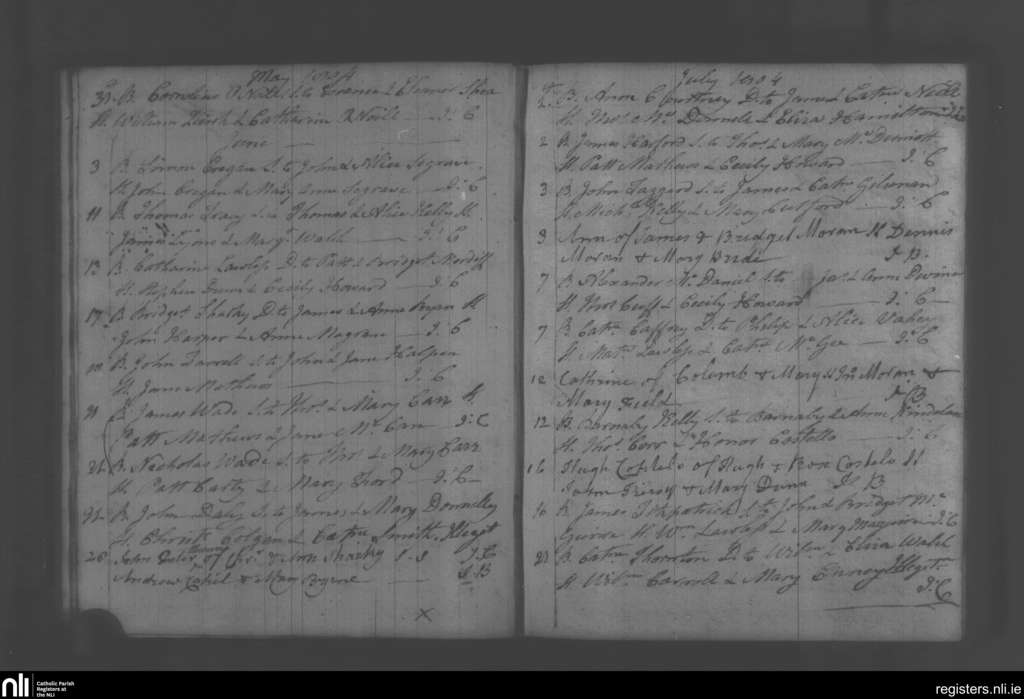 May 1804
31. B. Cornelius O Neill S. to Terence & Eleanor Shea
H. William & Catharin O Neill — J: C
June
3 B. Simon Cregan S. to John & Alice Segrave
H. John Cregan & Mary Anne Segrave — J: C
11 B. Thomas Tracy S. to Thomas & Alice Kelly H.
James Lyons & Margt. Walsh — J: C
13 B. Catharine Lawless D. to Patt & Bridget
H. Stephen Dunn & Cecily Howard — J: C
17 B. Bridget Sharky D. to James & Anne Ryan H.
John Harper & Anne Magrane — J: C
10 B. John Farrell S. to John & Jane Halpen
H. James Mathews — J: C
21 B. James Wade S. to Thos. & Mary Carr H.
Patt Mathews & Jane Mc. Cann — J: C
22 B. Nicholas Wade S. to Thos. & Mary Carr
H. Patt Carty & Mary Ford — J: C
22 B. John Daly S. to James & Mary Donnelley
H. Christr. Colgan & Cathn. Smith. Illegit
25 John of Chrr. & Ann Sharky J. C
Andrew & Mary Byrne — J: B
X
July 1804
B. Anne Courtney D. to James & Cathn. Neill
H. Thos. Mc. Donnele & Eliza Hamilton
2 B. James Harford S. to Thos. & Mary Mc. Dermott
H. Patt Mathews & Cecily Howard — J: C
3 B. John Taggard S. to James & Cathn.
H. Michl. Kelly & Mary Culford — J: C
3 Ann of James & Bridget Moran H Dennis
Moran & Mary Bride J. B.
7 B. Alexander Mc. Daniel S. to Jas. & Anne Divine
H. Thos. Cuff & Cecily Howard — J: C
7 B. Cathn. Caffrey D. to Philip & Alice
H. Mats. Lawless & Cathn. Mc. Gee — J: C
12 Cathrine of Colomb & Mary H Jno. Moran &
Mary Field J. B
12 B. Barnaby Kelly S. to Barnaby & Anne
H. Thos. Corr & Honor Costello — J: C
16 Hugh Costelo of Hugh & Rose Costelo H
John & Mary Dunn J. B
16 B. James Fitzpatrick S. to John & Bridget Mc.
H. Wm. Lawless & Mary Maguire J: C
22 B. Cathn. Thornton D. to Willm. & Eliza Walsh
H. Willm. Carroll & Mary Illegit.
J: C
nli
Catholic Parish
Registers at
the NLI
registers.nli.ie